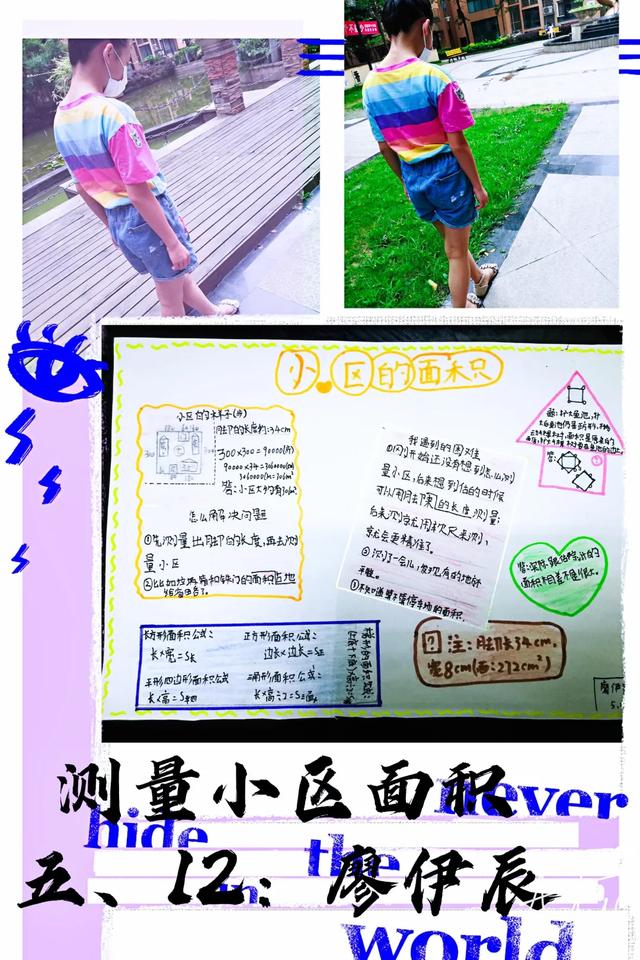 小区的面积
小区的样子(步)
脚丫的长度约:34cm
300×300=90000(步)
90000×34=3060000(cm)
3060000cm=306m²
答:小区大约有306m².
怎么解决问题
①先测量出脚丫的长度,再去测
量小区
②比如垃圾箱和铁门的面积
我遇到的困难
①刚开始还没有想到怎么测
量小区,后来想到估的时候
可以用脚丫的长度测量,
后来测完就用软尺来测,
就会更精准了。
②测了一会儿,发现有的地砖
不整。
题:扩大鱼池,扩
答:
答:实际跟估出来的
面积相差不是很大。
长方形面积公式:
长×宽=S长
正方形面积公式:
边长×边长=S正
平行四边形面积公式:
长×高=S平四
三角形面积公式:
长×高÷2=S三角
梯形的面积公式:
注:脚长34cm,
宽8cm(面:272cm²)
廖伊
5.1
测量小区面积
never
hide
the
in
五、12:廖伊辰
world